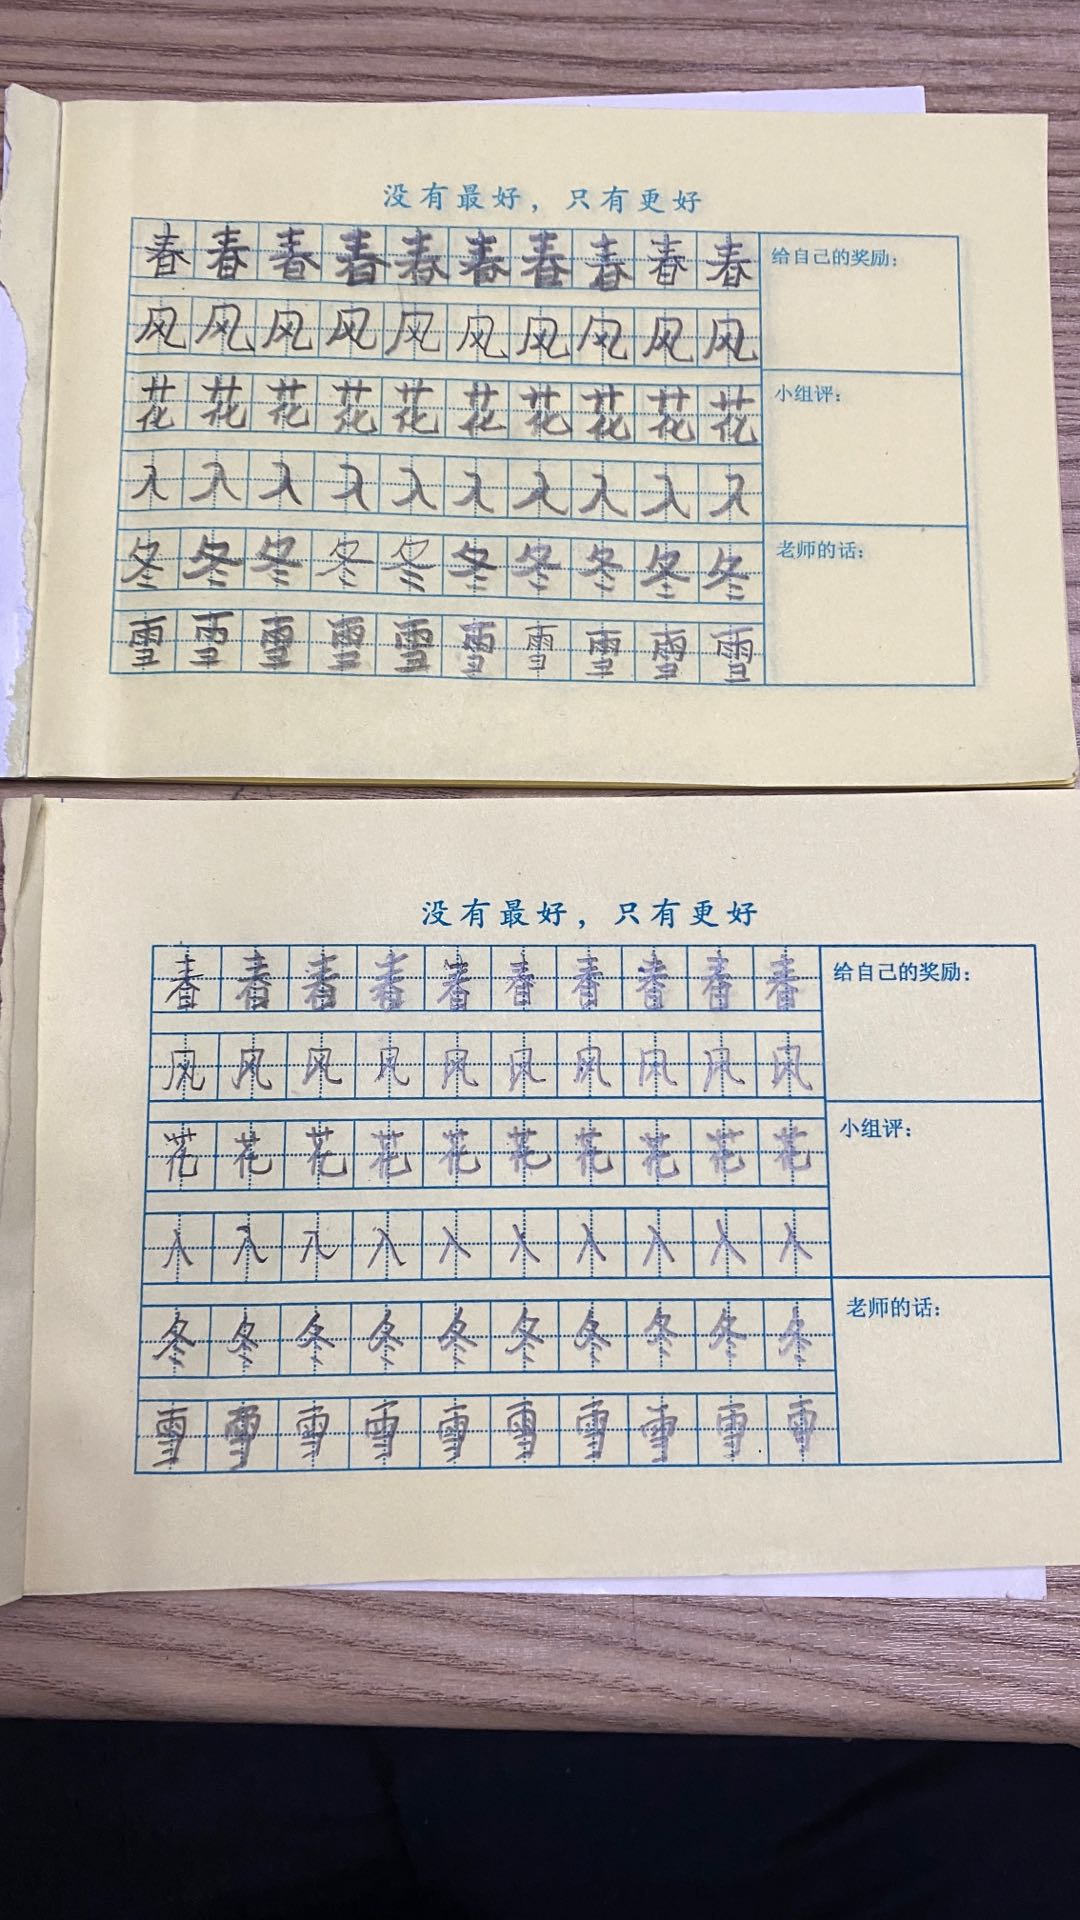 没有最好，只有更好
春春春春春春春春春春
给自己的奖励：
风风风风风风风风风风
花花花花花花花花花花
小组评：
入入入入入入入入入入
冬冬冬冬冬冬冬冬冬冬
老师的话：
雪雪雪雪雪雪雪雪雪雪
没有最好，只有更好
春春春春春春春春春春
给自己的奖励：
风风风风风风风风风风
花花花花花花花花花花
小组评：
入入入入入入入入入入
冬冬冬冬冬冬冬冬冬冬
老师的话：
雪雪雪雪雪雪雪雪雪雪